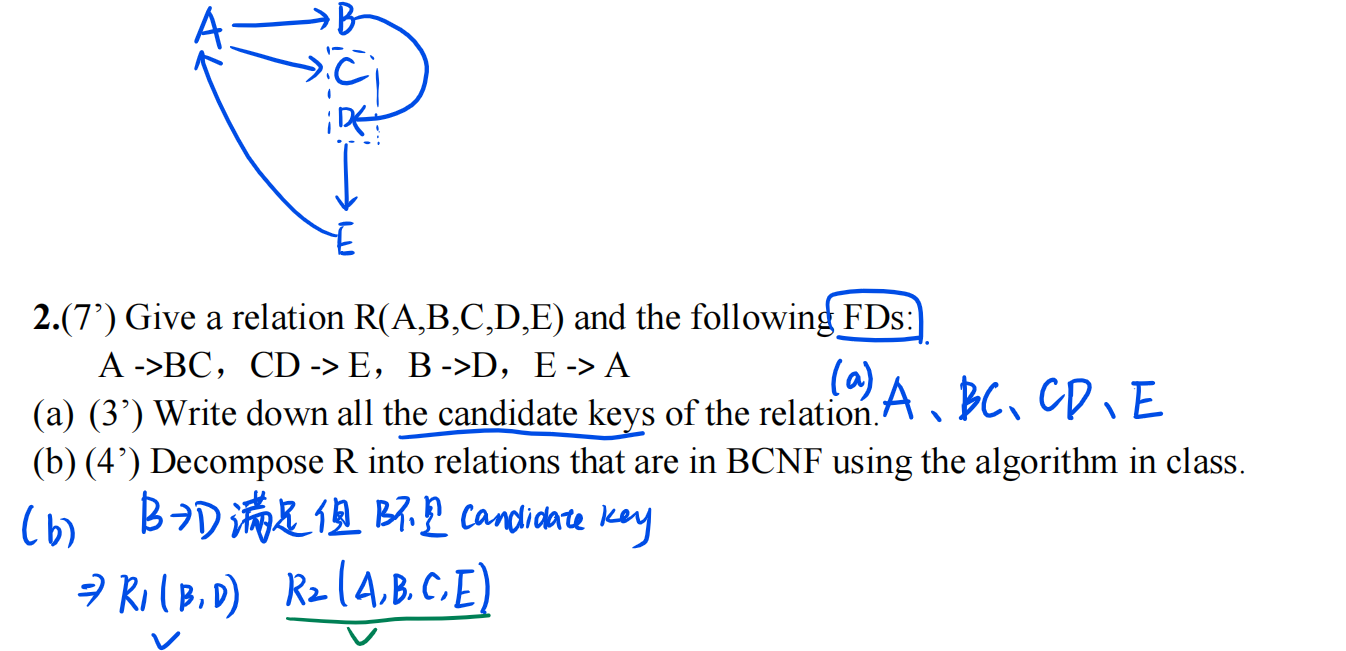 A B
C
D
E
2.(7’) Give a relation R(A,B,C,D,E) and the following FDs:
A ->BC，CD -> E，B ->D，E -> A
(a) (3’) Write down all the candidate keys of the relation.
(a) A、BC、CD、E
(b) (4’) Decompose R into relations that are in BCNF using the algorithm in class.
(b) B→D满足但 B不是 candidate key
⇒ R1(B,D) R2(A,B,C,E)